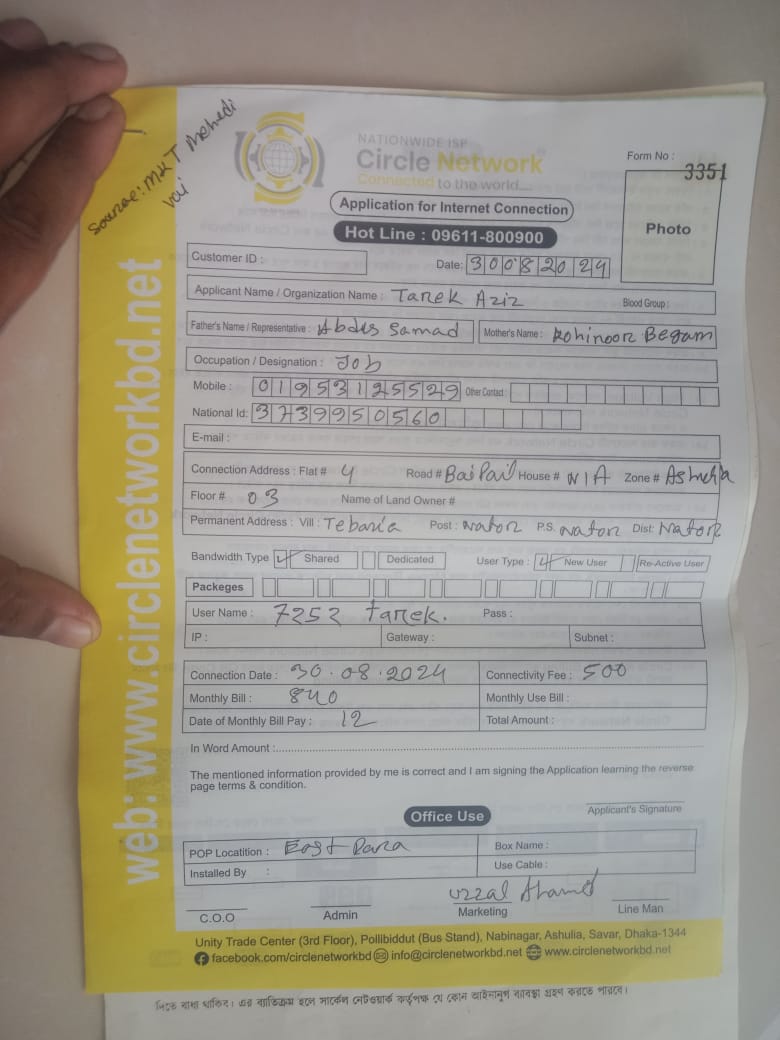 Source: MKT Mehedi
vai
NATIONWIDE ISP
Circle Network
Connected to the world....
Form No :
3351
Photo
Application for Internet Connection
Hot Line : 09611-800900
Customer ID :
Date: 30082024
Applicant Name / Organization Name : Tarek Aziz Blood Group :
Father's Name / Representative : Abdus Samad Mother's Name : Rohinoor Begam
Occupation / Designation : Job
Mobile : 01953125529 Other Contact :
National Id: 3739950560
E-mail :
Connection Address : Flat # 4 Road # Bai Pail House # N/A Zone # Ashulia
Floor # 03 Name of Land Owner #
Permanent Address : Vill : Tebaria Post : Nator P.S. Nator Dist: Nator
Bandwidth Type Shared Dedicated User Type : New User Re-Active User
Packeges
User Name : 7252 tarek. Pass :
IP : Gateway : Subnet :
Connection Date : 30.08.2024 Connectivity Fee : 500
Monthly Bill : 840 Monthly Use Bill :
Date of Monthly Bill Pay : 12 Total Amount :
In Word Amount :
The mentioned information provided by me is correct and I am signing the Application learning the reverse
page terms & condition.
Applicant's Signature
Office Use
POP Locatition : East Para Box Name :
Installed By : Use Cable :
Uzzal Ahamed
C.O.O Admin Marketing Line Man
Unity Trade Center (3rd Floor), Pollibiddut (Bus Stand), Nabinagar, Ashulia, Savar, Dhaka-1344
facebook.com/circlenetworkbd info@circlenetworkbd.net www.circlenetworkbd.net
web: www.circlenetworkbd.net
দিতে বাধ্য থাকিব। এর ব্যতিক্রম হলে সার্কেল নেটওয়ার্ক কর্তৃপক্ষ যে কোন আইনানুগ ব্যবস্থা গ্রহণ করতে পারবে।